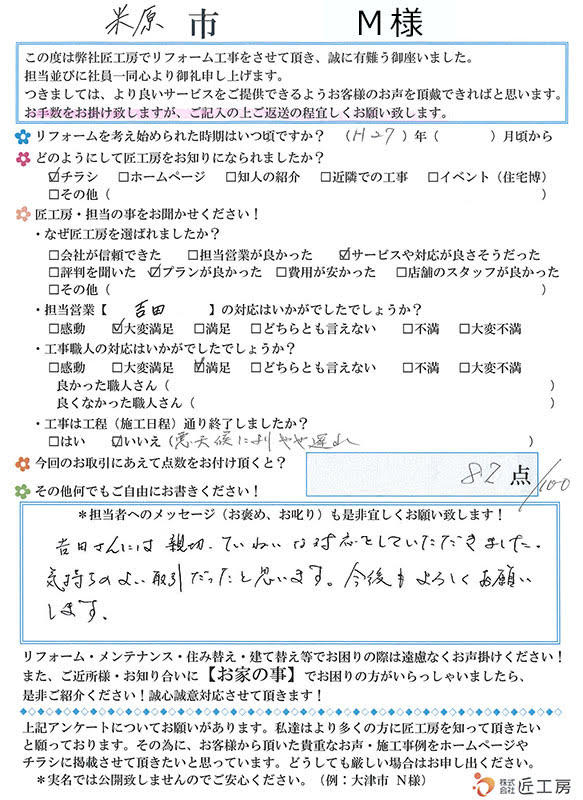 米原 市 M様
この度は弊社匠工房でリフォーム工事をさせて頂き、誠に有難う御座いました。
担当並びに社員一同心より御礼申し上げます。
つきましては、より良いサービスをご提供できるようお客様のお声を頂戴できればと思います。
お手数をお掛け致しますが、ご記入の上ご返送の程宜しくお願い致します。
リフォームを考え始められた時期はいつ頃ですか？ （H27）年（ ）月頃から
どのようにして匠工房をお知りになられましたか？
☑チラシ □ホームページ □知人の紹介 □近隣での工事 □イベント（住宅博）
□その他（ ）
匠工房・担当の事をお聞かせください！
・なぜ匠工房を選ばれましたか？
□会社が信頼できた □担当営業が良かった ☑サービスや対応が良さそうだった
□評判を聞いた ☑プランが良かった □費用が安かった □店舗のスタッフが良かった
□その他（ ）
・担当営業【 吉田 】の対応はいかがでしたでしょうか？
□感動 ☑大変満足 □満足 □どちらとも言えない □不満 □大変不満
・工事職人の対応はいかがでしたでしょうか？
□感動 □大変満足 ☑満足 □どちらとも言えない □不満 □大変不満
良かった職人さん（ ）
良くなかった職人さん（ ）
・工事は工程（施工日程）通り終了しましたか？
□はい ☑いいえ（悪天候によりやや遅れ ）
今回のお取引にあえて点数をお付け頂くと？ 82点/100
その他何でもご自由にお書きください！
＊担当者へのメッセージ（お褒め、お叱り）も是非宜しくお願い致します！
吉田さんには親切、ていねいな対応をしていただきました。
気持ちのよい取引だったと思います。今後もよろしくお願い
します。
リフォーム・メンテナンス・住み替え・建て替え等でお困りの際は遠慮なくお声掛けください！
また、ご近所様・お知り合いに【お家の事】でお困りの方がいらっしゃいましたら、
是非ご紹介ください！誠心誠意対応させて頂きます！
上記アンケートについてお願いがあります。私達はより多くの方に匠工房を知って頂きたい
と願っております。その為に、お客様から頂いた貴重なお声・施工事例をホームページや
チラシに掲載させて頂きたいと思っています。どうしても厳しい場合はお申し出ください。
＊実名では公開致しませんのでご安心ください。（例：大津市 N様）
株式会社 匠工房